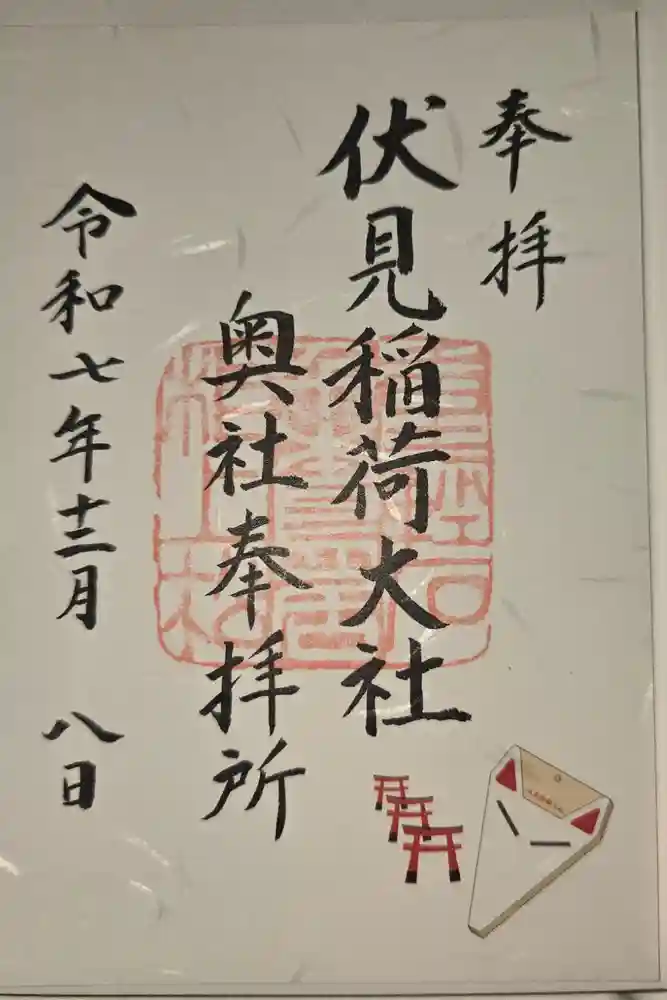 奉拝
伏見稲荷大社
奥社奉拝所
令和七年十二月 八日